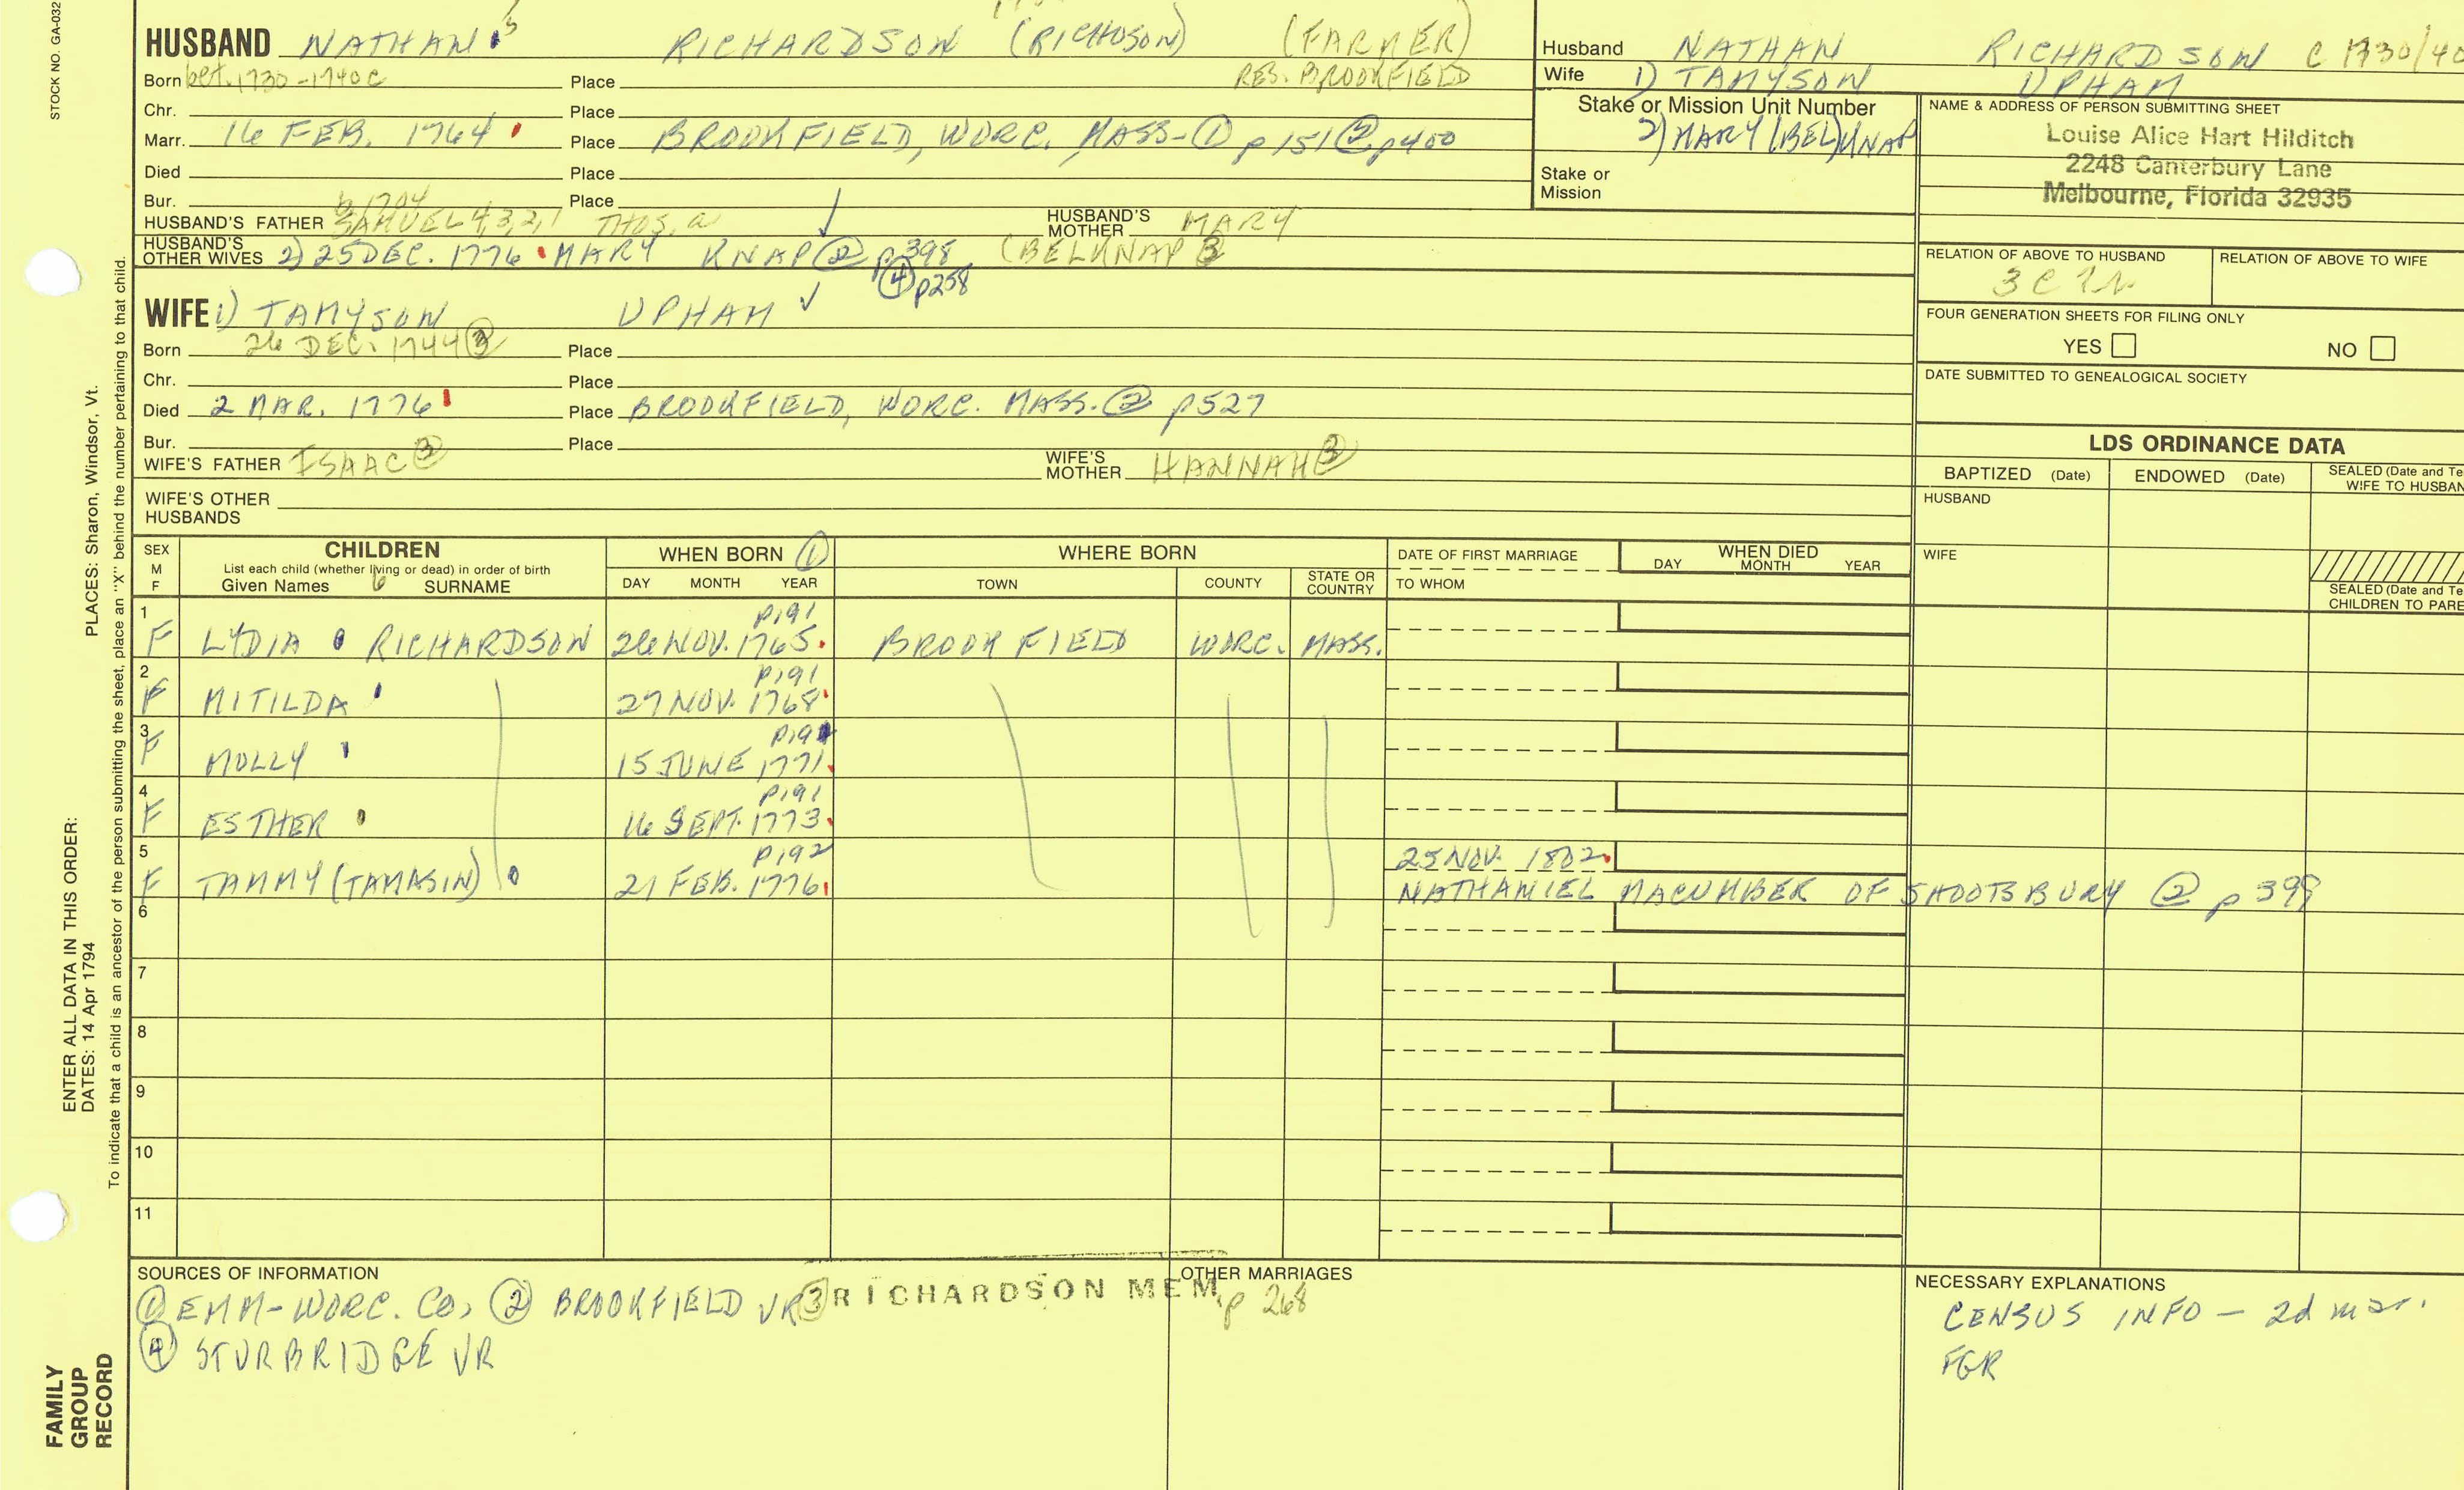 STOCK NO. GA-032
HUSBAND NATHAN 5 RICHARDSON (RICHDSON) (FARMER)
Born bet. 1730-1740 c Place RES. BROOKFIELD
Chr. Place
Marr. 16 FEB. 1764 Place BROOKFIELD, WORC. MASS-① p151 ② p400
Died Place
Bur. Place
b 1704
HUSBAND'S FATHER SAMUEL 4,3,2,1 THOS. a HUSBAND'S MOTHER MARY
HUSBAND'S OTHER WIVES 2) 25 DEC. 1776 MARY KNAP ② p398 (BELKNAP ③
④ p258
WIFE 1) TAMYSON UPHAM ✓
Born 26 DEC. 1744 ③ Place
Chr. Place
Died 2 MAR. 1776 Place BROOKFIELD, WORC. MASS. ② p527
Bur. Place
WIFE'S FATHER ISAAC ③ WIFE'S MOTHER HANNAH ③
WIFE'S OTHER HUSBANDS
Husband NATHAN RICHARDSON C 1730/40
Wife 1) TAMYSON UPHAM
Stake or Mission Unit Number
2) MARY (BEL)KNAP
Stake or Mission
NAME & ADDRESS OF PERSON SUBMITTING SHEET
Louise Alice Hart Hilditch
2248 Canterbury Lane
Melbourne, Florida 32935
RELATION OF ABOVE TO HUSBAND RELATION OF ABOVE TO WIFE
FOUR GENERATION SHEETS FOR FILING ONLY
YES NO
DATE SUBMITTED TO GENEALOGICAL SOCIETY
LDS ORDINANCE DATA
BAPTIZED (Date) ENDOWED (Date) SEALED (Date and Te
WIFE TO HUSBAN
HUSBAND
WIFE
SEALED (Date and Te
CHILDREN TO PARE
SEX M F
CHILDREN
List each child (whether living or dead) in order of birth
Given Names SURNAME
WHEN BORN ①
DAY MONTH YEAR
WHERE BORN
TOWN COUNTY STATE OR COUNTRY
DATE OF FIRST MARRIAGE
TO WHOM
WHEN DIED
DAY MONTH YEAR
1 p191
F LYDIA RICHARDSON 26 NOV. 1765 BROOKFIELD WORC. MASS.
2 p191
F MITILDA 27 NOV. 1768
3 p191
F MOLLY 15 JUNE 1771
4 p191
F ESTHER 16 SEPT. 1773
5 p192 25 NOV. 1802
F TAMMY (TAMASIN) 21 FEB. 1776 NATHANIEL MACUMBER OF SHOOTSBURY ② p 399
6
7
8
9
10
11
SOURCES OF INFORMATION
① EMM-WORC. CO, ② BROOKFIELD VR ③ RICHARDSON MEM, p 268
④ STURBRIDGE VR
OTHER MARRIAGES
NECESSARY EXPLANATIONS
CENSUS INFO - 2d mar.
FGR
PLACES: Sharon, Windsor, Vt.
ENTER ALL DATA IN THIS ORDER:
DATES: 14 Apr 1794
To indicate that a child is an ancestor of the person submitting the sheet, place an "X" behind the number pertaining to that child.
FAMILY
GROUP
RECORD